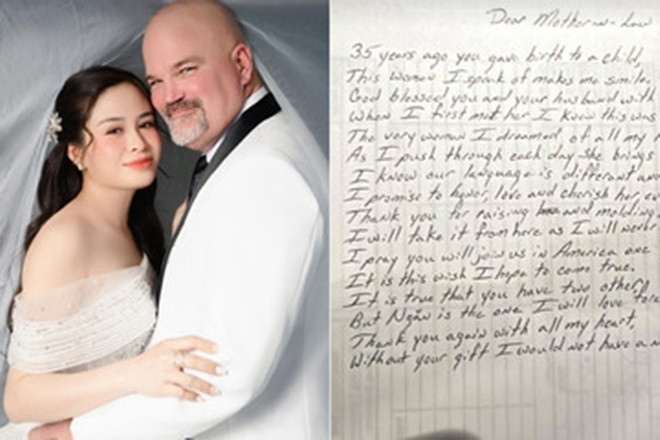 Dear Mother-in-Law
35 years ago you gave birth to a child,
This woman I speak of makes me smile.
God blessed you and your husband with
When I first met her I knew this was
The very woman I dreamed of all my
As I push through each day she brings
I know our language is different and
I promise to honor, love and cherish her
Thank you for raising and molding
I will take it from here as I will never
I pray you will join us in America one
It is this wish I hope to come true.
It is true that you have two other
But Ngân is the one I will love
Thank you again with all my heart,
Without your gift I would not have a